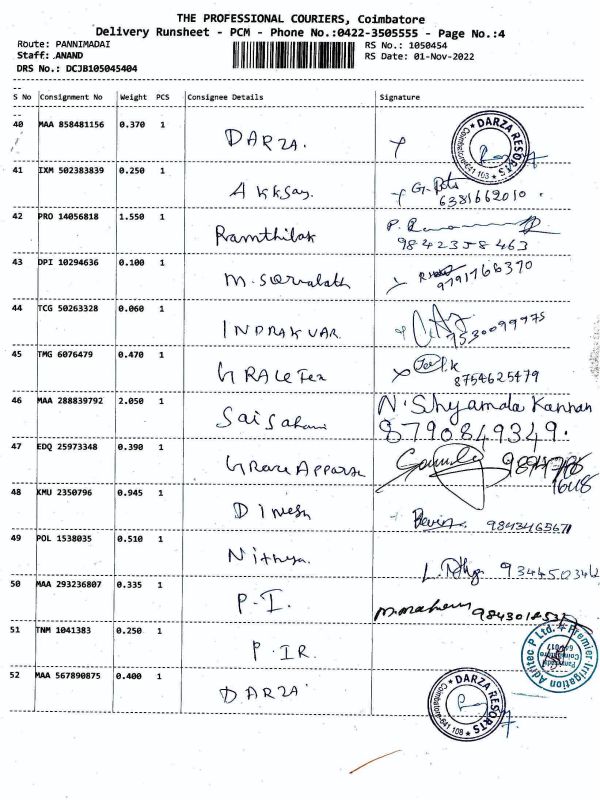 THE PROFESSIONAL COURIERS, Coimbatore
Delivery Runsheet - PCM - Phone No.:0422-3505555 - Page No.:4
Route: PANNIMADAI
RS No.: 1050454
Staff: .ANAND
RS Date: 01-Nov-2022
DRS No.: DCJB105045404
S No Consignment No Weight PCS Consignee Details Signature
40 MAA 858481156 0.370 1 DARZA.
DARZA RESORTS
Coimbatore-641 103
41 IXM 502383839 0.250 1 Akksay
6381662010
42 PRO 14056818 1.550 1 Ramthilak
9842358463
43 DPI 10294636 0.100 1
9791766370
44 TCG 50263328 0.060 1
7530099775
45 TMG 6076479 0.470 1
8754625479
46 MAA 288839792 2.050 1 N. Shyamala Kannan
8790849349.
47 EDQ 25973348 0.390 1
48 KMU 2350796 0.945 1 Dinesh
49 POL 1538035 0.510 1 Nithya.
50 MAA 293236807 0.335 1 P.I.
51 TNM 1041383 0.250 1 P.IR
Premier Irrigation Adritec P Ltd.
52 MAA 567890875 0.400 1 DARZA
DARZA RESORTS